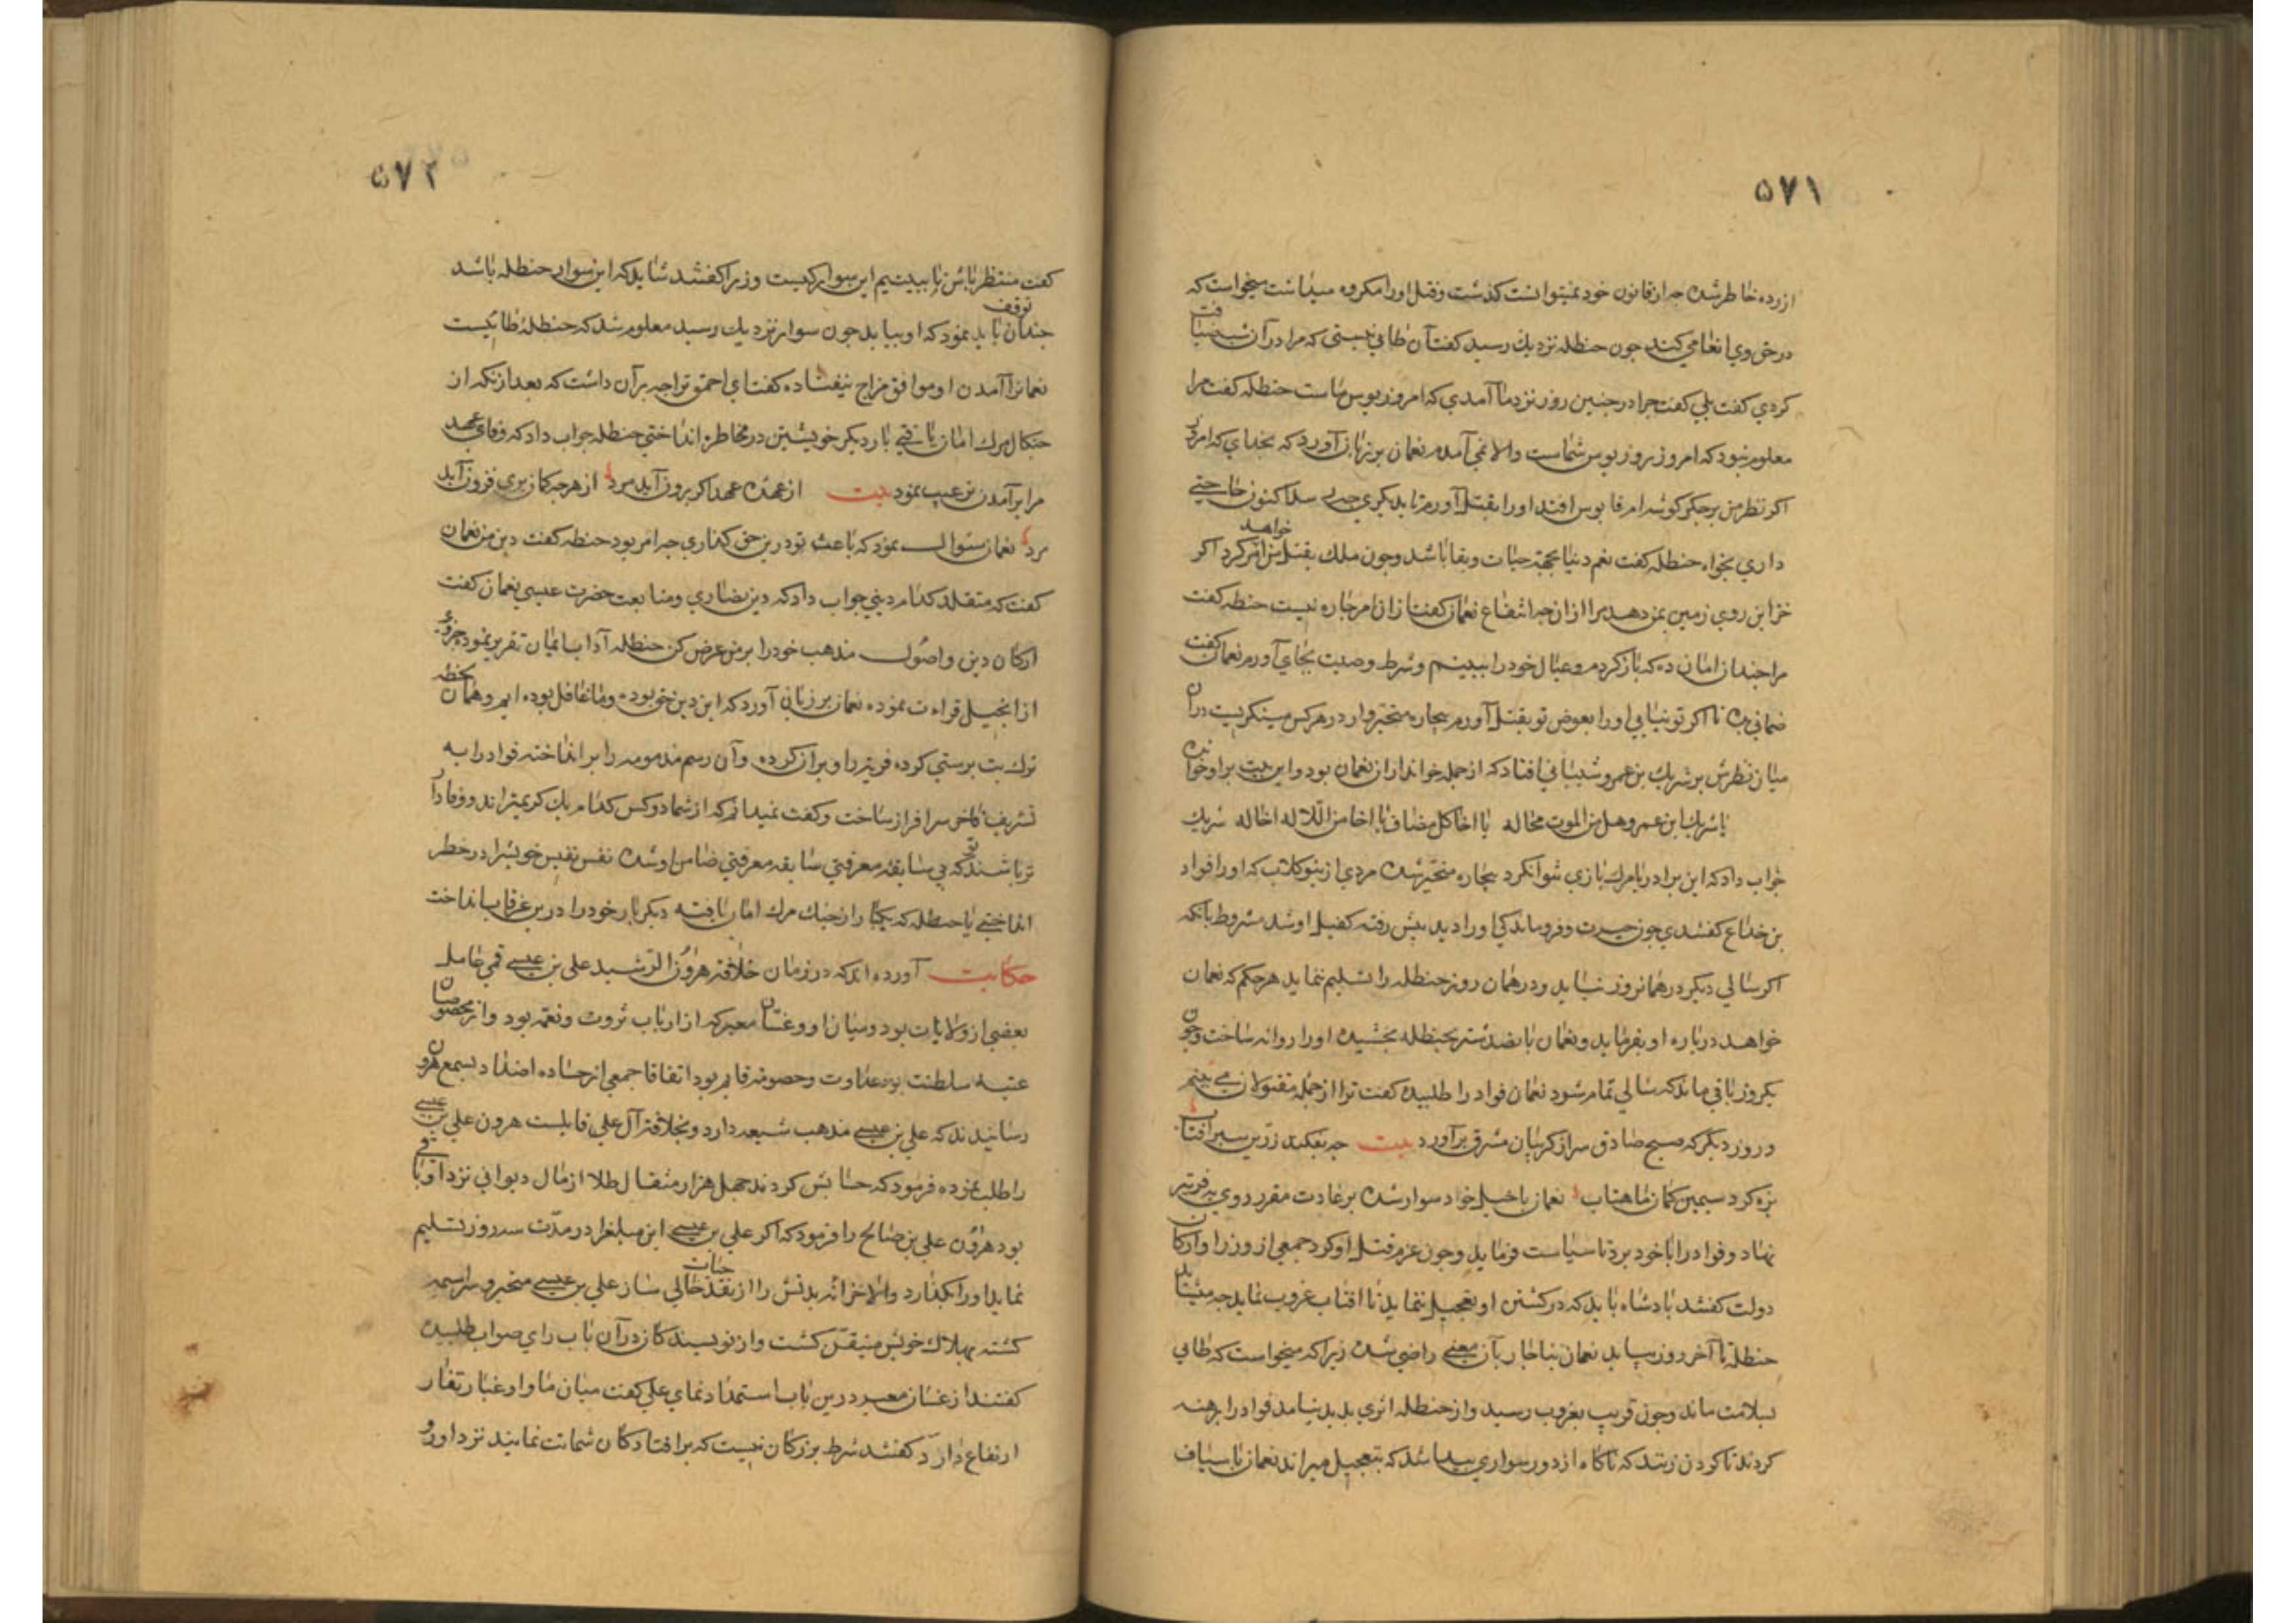 ۵۷۱
ازرده خاطر شده چه از قانون خود نمیتوانست کذشت و قتل او را مکروه میداشت میخواست که
در حق وی انعامی کند چون حنظله نزدیك رسید کفت آن طائی نیستی که مرا در آن شب ضیافت
کردی کفت بلی کفت چرا در چنین روز نزد ما آمدی که امروز بوس ماست حنظله کفت مرا
معلوم نبود که امروز روز بوس شماست والا نمی آمدم نعمان بر زبان آورد که بخدای که امروز
اکر نظر من بر جکر کوشه ام قابوس افتد او را بقتل آورم تا بدیکری چه رسد اکنون حاجتی
داری بخواه حنظله کفت نعم دنیا بجهة حیات و بقا باشد و چون ملك بقتل من امر خواهد کرد اکر
خزاین روی زمین بمن دهد مرا از ان چه انتفاع نعمان کفت ازان امر چاره نیست حنظله کفت
مرا چندان امان ده که باز کردم و عیال خود را ببینم و شرط وصیت بجای آورم نعمان کفت
ضمانی بده تا اکر تو نیایی او را بعوض تو بقتل آورم بیچاره متحیر وار در هر کس مینکریست دران
میان نظرش بر شریك بن عمرو شیبانی افتاد که از جمله خوانداران نعمان بود و این بیت بر او خوانده
یا شریك ابن عمرو هل من الموت محاله یا اخا کل مضاف یا اخا من اللا له اخا له شریك
جواب داد که این برادر با مرك بازی نتوان کرد بیچاره متحیر شده مردی از بنو کلاب که او را فواد
بن خداع کفتندی چون حیرت و فروماندکی او را دید پیش رفته کفیل او شد مشروط بانکه
اکر سالی دیکر در همانروز نیاید و در همان روز حنظله را تسلیم ننماید هر حکم که نعمان
خواهد درباره او بفرماید و نعمان پانصد شتر بحنظله بخشیده او را روانه ساخت و چون
یکروز باقی ماند که سالی تمام شود نعمان فواد را طلبیده کفت ترا از جمله مقتولان می بینم
و روز دیکر که صبح صادق سر از کریبان مشرق برآورد بیت چه بفکند زرین سپر آفتاب
بزه کرد سیمین کمان ماهتاب نعمان با خیل خود سوار شده بر عادت مقرر روی به قریه
نهاد و فواد را با خود برد تا سیاست فرماید و چون عزم قتل او کرد جمعی از وزرا و ارکان
دولت کفتند پادشاه باید که در کشتن او تعجیل ننماید تا افتاب غروب نماید چه میشاید
حنظله تا آخر روز بیاید نعمان بناچار بآن معنی راضی شده زیرا که میخواست که طائی
بسلامت ماند و چون قریب بغروب رسید و از حنظله اثری پدید نیامد فواد را برهنه
کردند تا کردن زنند که ناکاه از دور سواری پیدا شد که بتعجیل میراند نعمان با سیاف
۵۷۲
کفت منتظر باش تا ببینیم این سوار کیست وزیرا کفتند شاید که این سوار حنظله باشد
چندان توقف باید نمود که او بیاید چون سوار نزدیك رسید معلوم شد که حنظلهٔ طائیست
نعمانرا آمدن او موافق مزاج نیفتاده کفت ای احمق ترا چه برآن داشت که بعد ازنکه از
چنکال مرك امان یافتی بار دیکر خویشتن در مخاطره انداختی حنظله جواب داد که وفای عهد
مرا برآمدن ترغیب نمود بیت از عهدهٔ عهد اکر برون آید مرد از هرچه کمان بری فزون آید
مرد نعمان سئوال نمود که باعث تو درین حق کذاری چه امر بود حنظله کفت دین من نعمان
کفت که متقلد کدام دینی جواب داد که دین نصاری و متابعت حضرت عیسی نعمان کفت
ارکان دین و اصول مذهب خود را بر من عرض کن حنظله آداب ایمان تقریر نمود جزوی
از انجیل قراءت نموده نعمان بر زبان آورد که این دین حق بوده و ما غافل بوده ایم و همان لحظه
ترك بت پرستی کرده قریه را ویران کرده و آن رسم مذمومه را بر انداخته فواد را به
تشریف فاخر سرافراز ساخت و کفت نمیدانم که از شما دو کس کدام یك کریمتراند و وفادار
تر باشند تو که بی سابقهٔ معرفتی سابقه معرفتی ضامن او شده نفس نفیس خویشرا در خطر
انداختی یا حنظله که یکبار از چنك مرك امان یافته دیکر بار خود را درین غرقاب انداخت
حکایت آورده اند که در زمان خلافه هرون الرشید علی بن عیسی قمی عامل
بعضی از ولایات بود و میان او و غسان معیر که از ارباب ثروت و نعمه بود و از مخصوصان
عتبه سلطنت بود عداوت و خصومه قایم بود اتفاقا جمعی از حساد و اضداد بسمع هرون
رسانیدند که علی بن عیسی مذهب شیعه دارد و بخلافت آل علی قایلست هرون علی بن عیسی
را طلب نموده فرمود که حسابش کردند چهل هزار مثقال طلا از مال دیوانی نزد او باقی
بود هرون علی بن صالح را فرمود که اکر علی بن عیسی این مبلغرا در مدت سه روز تسلیم
نماید او را بکذارد والا خزانه بدنش را از نقد حیات خالی ساز علی بن عیسی متحیر و سراسیمه
کشته بهلاك خویش متیقن کشت و از نویسندکان درآن باب رای صواب طلبیده
کفتند از غسان معیر درین باب استمداد نمای علی کفت میان ما و او غبار نقار
ارتفاع دارد کفتند شرط بزرکان نیست که بر افتادکان شماتت نمایند نزد او رو